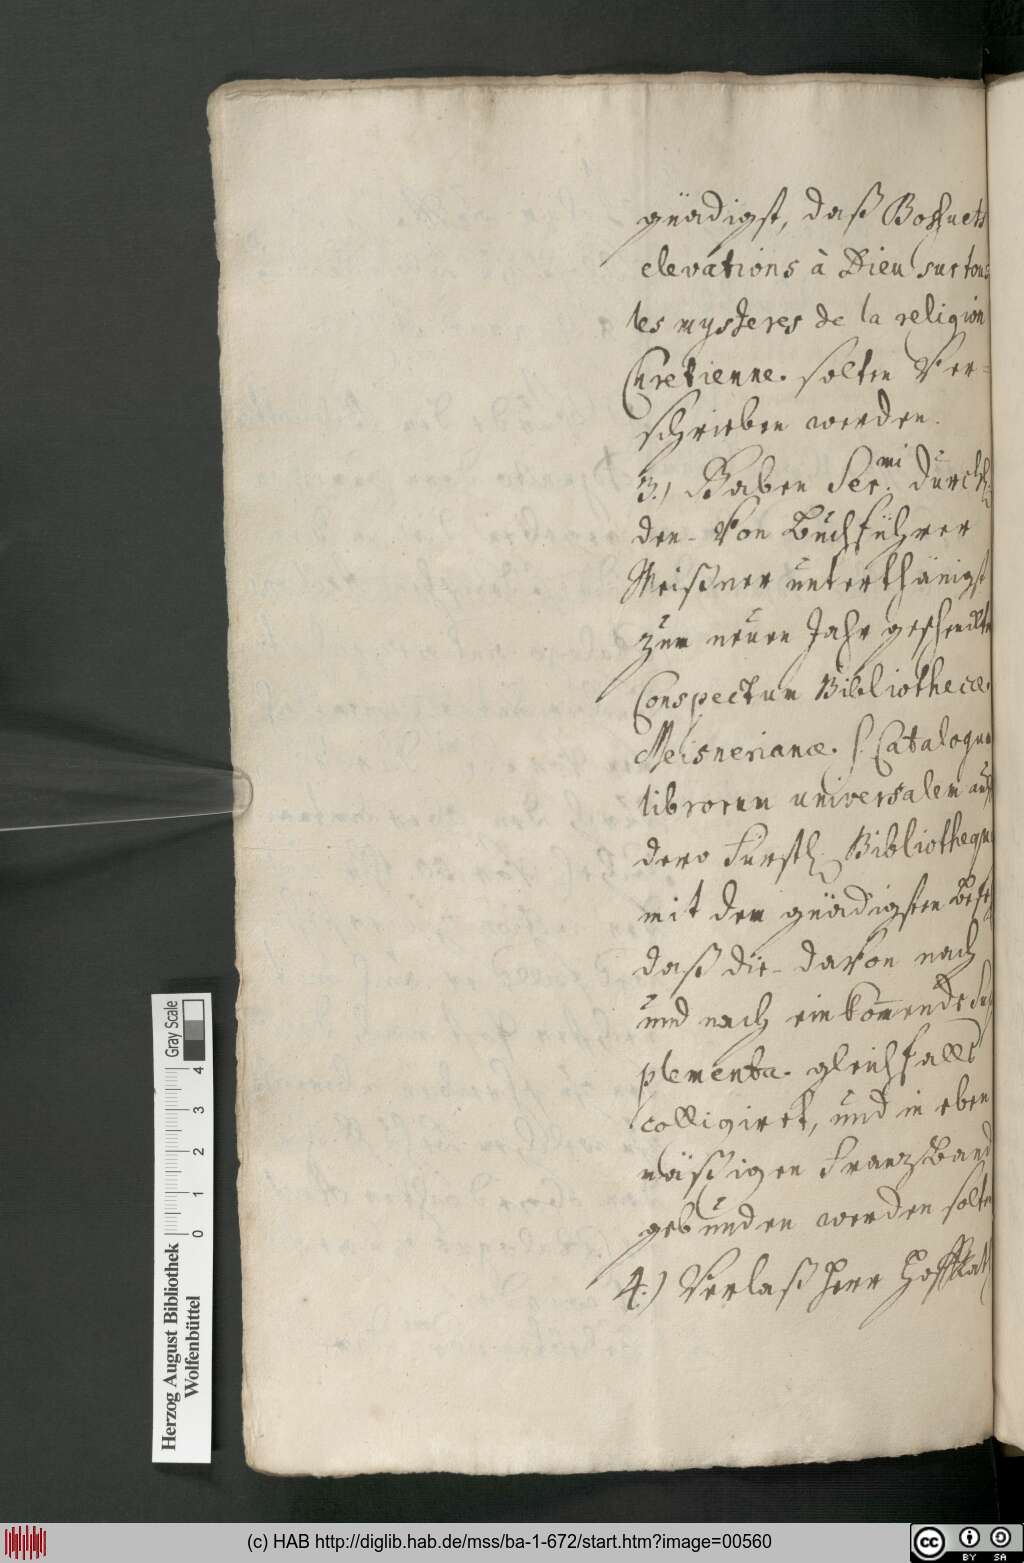 gnädigst, daß Boßuets
elevations à Dieu sur tous
les mysteres de la religion
Chretienne. solten Ver-
schrieben werden.
3.) Haben Ser.mi Durchl.
den Von Buchführer
Meißner unterthänigst
zum neuen Jahr geschenckte
Conspectum Bibliothecæ.
Meisnerianæ. s. Catalogum
librorum universalem auf
dero Fürstl. Bibliotheque
mit dem gnädigsten Befehl
daß die davon nach
und nach einkom̅ende Sup
plementa. gleichfalls
colligiret, und in eben
mäßigen Franzband
gebunden werden solten
4.) Verlaß Herr HoffRath
Herzog August Bibliothek
Wolfenbüttel
0 1 2 3 4
Gray Scale
(c) HAB http://diglib.hab.de/mss/ba-1-672/start.htm?image=00560
cc BY SA